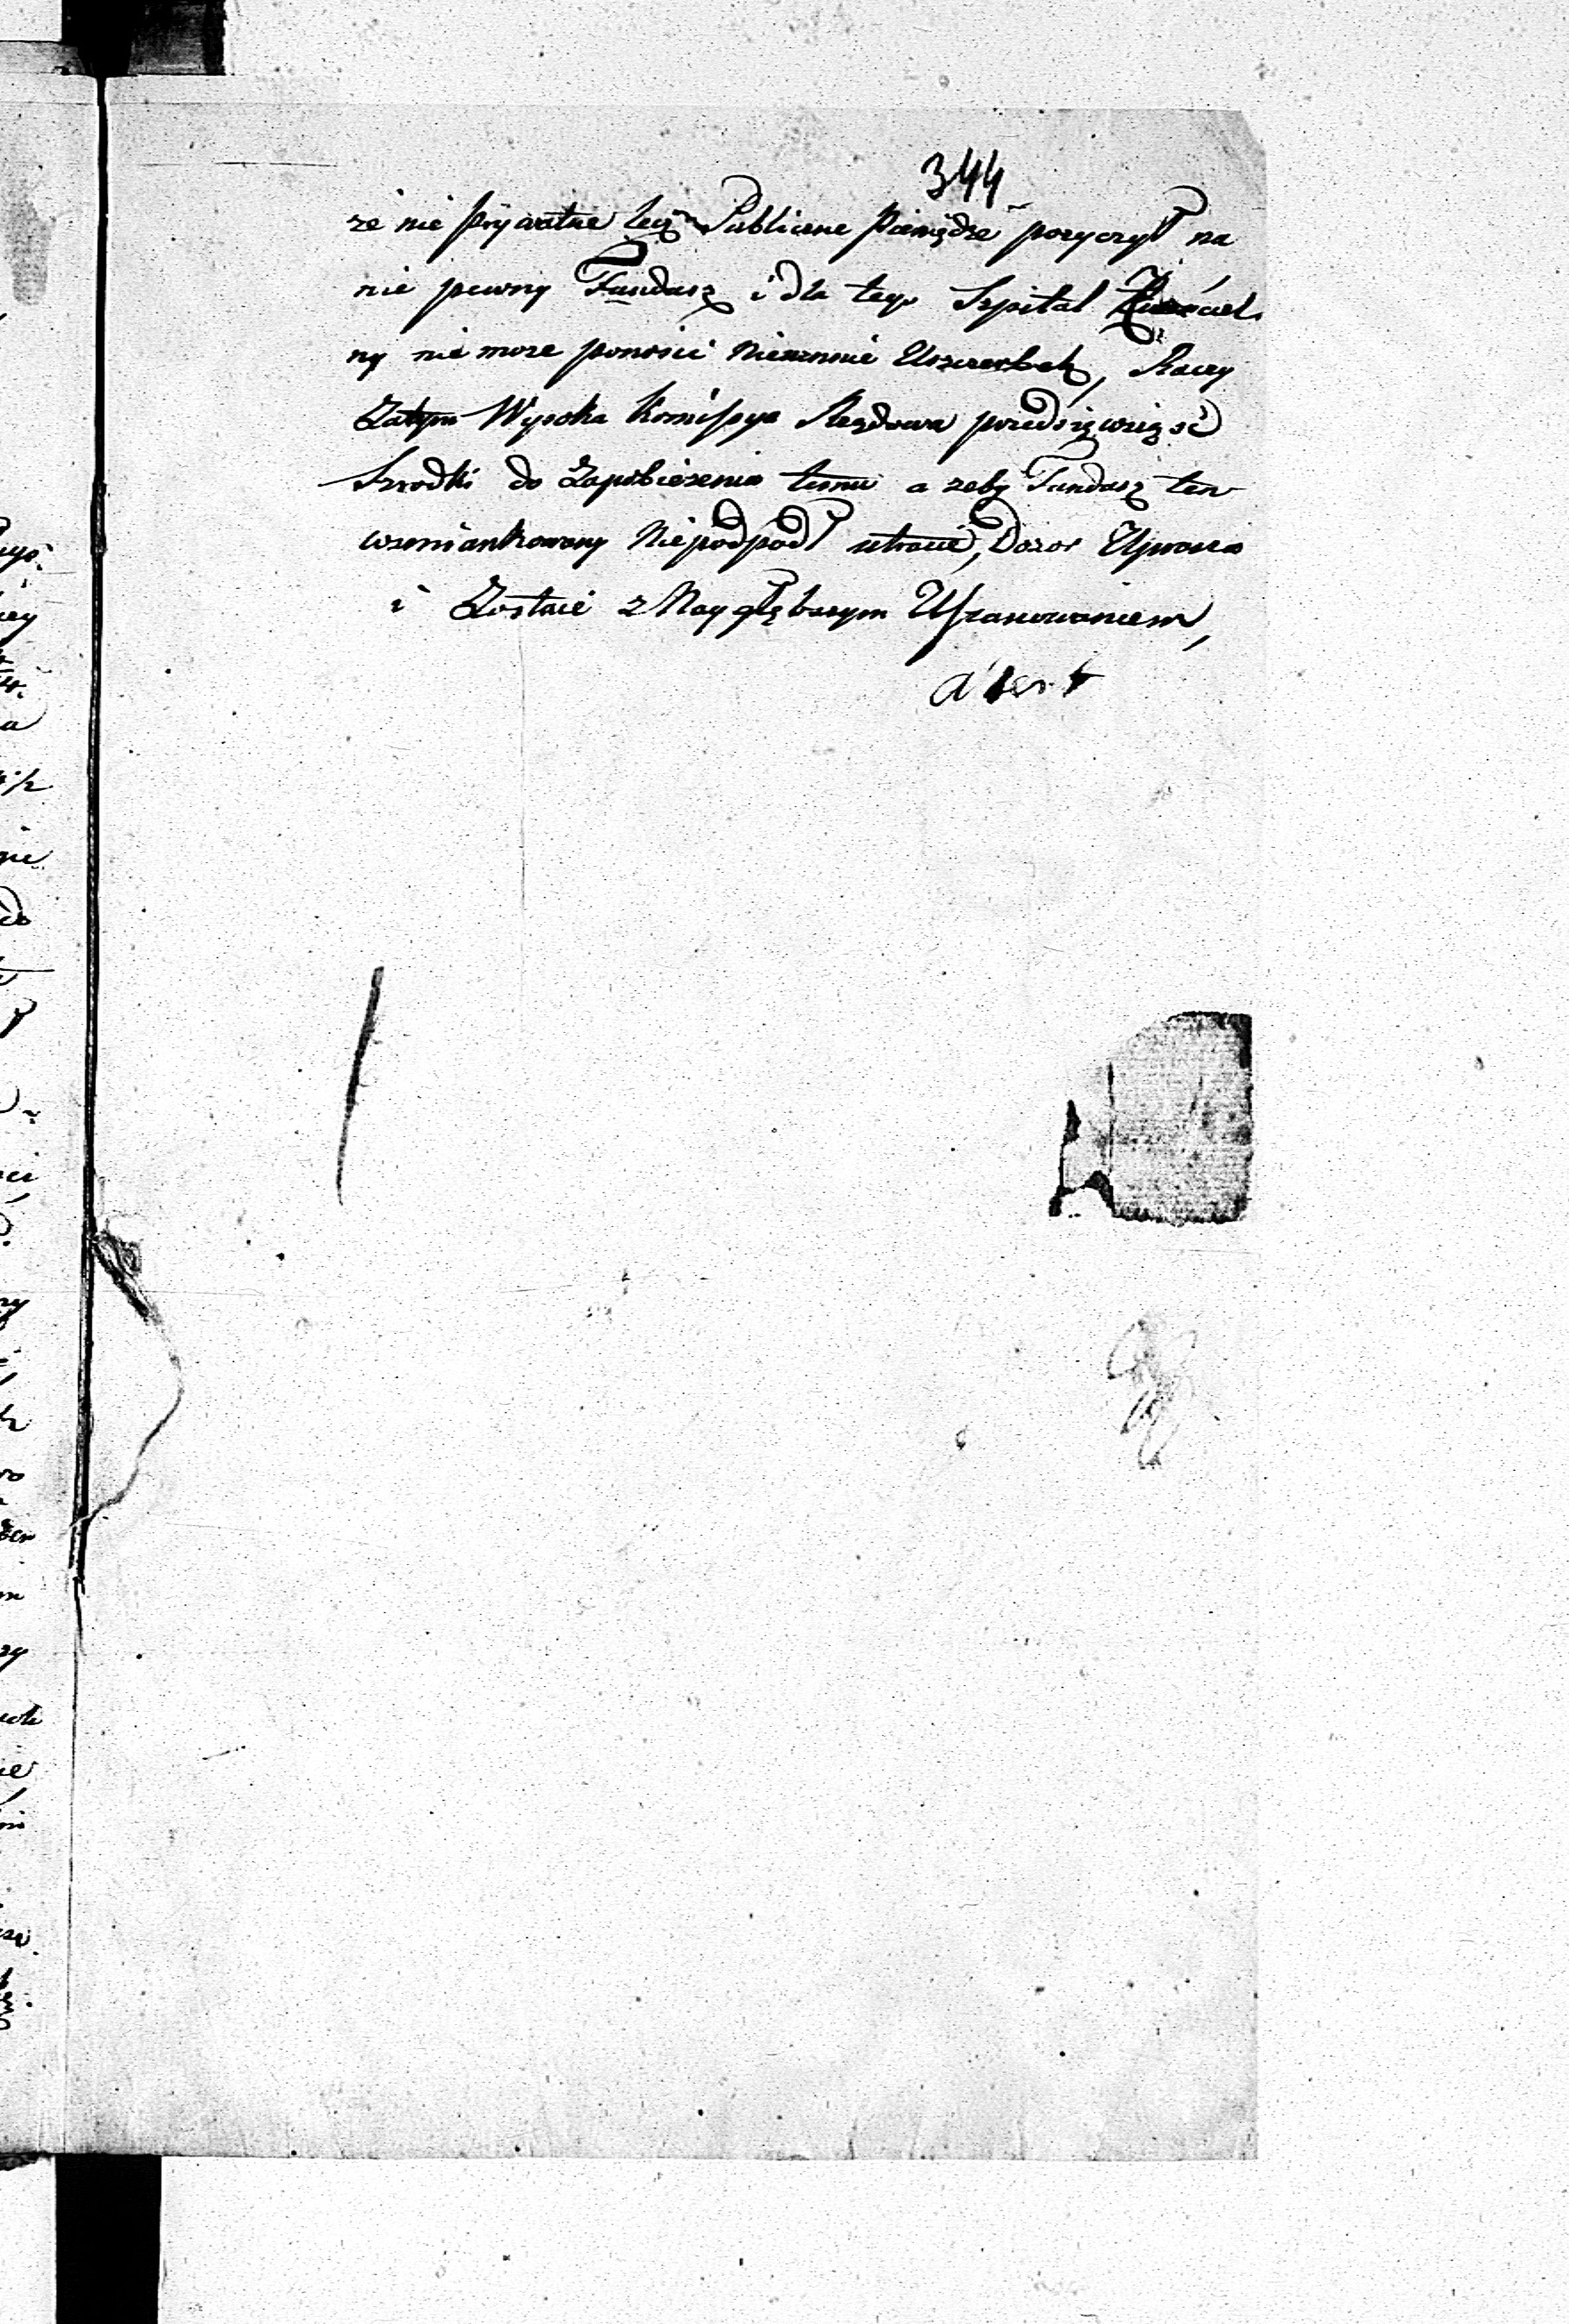 344
ze nie prywatne lecz Publiczne Pieniądze pozyczył na
nie pewny Fundusz i dla tego Szpital
ny nie moze ponosić Niewinnie Uszczerbek, Raczy
Zatym Wysoka Kommissya Rządowa przedsięwziąść
Szrodki do Zapobiezenia temu a zeby Fundusz ten
wzmiankowany Niepodpadł utracie, Dozor Uprasza
i Zostaie z Naygłębszym Uszanowaniem,